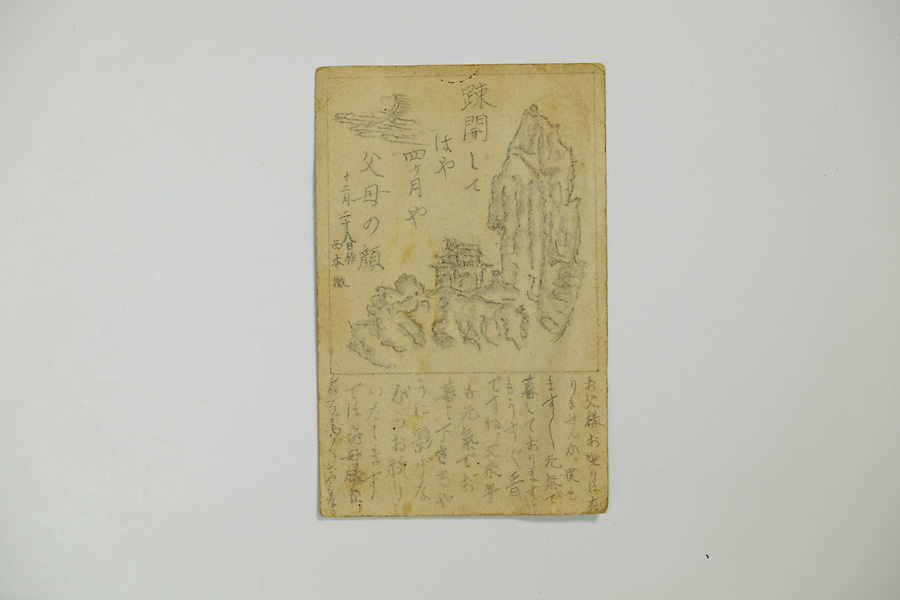 疎開して
はや
四ヶ月や
父母の顔
十二月二十八日作
西本 徹
お父様お変りはあ
りませんか。僕も
ますます元気で
暮しております。
もうすぐお正月
ですね。又来年
も元氣でお
暮しできるや
うに影げな
がらお祈り
いたします
ではお母様